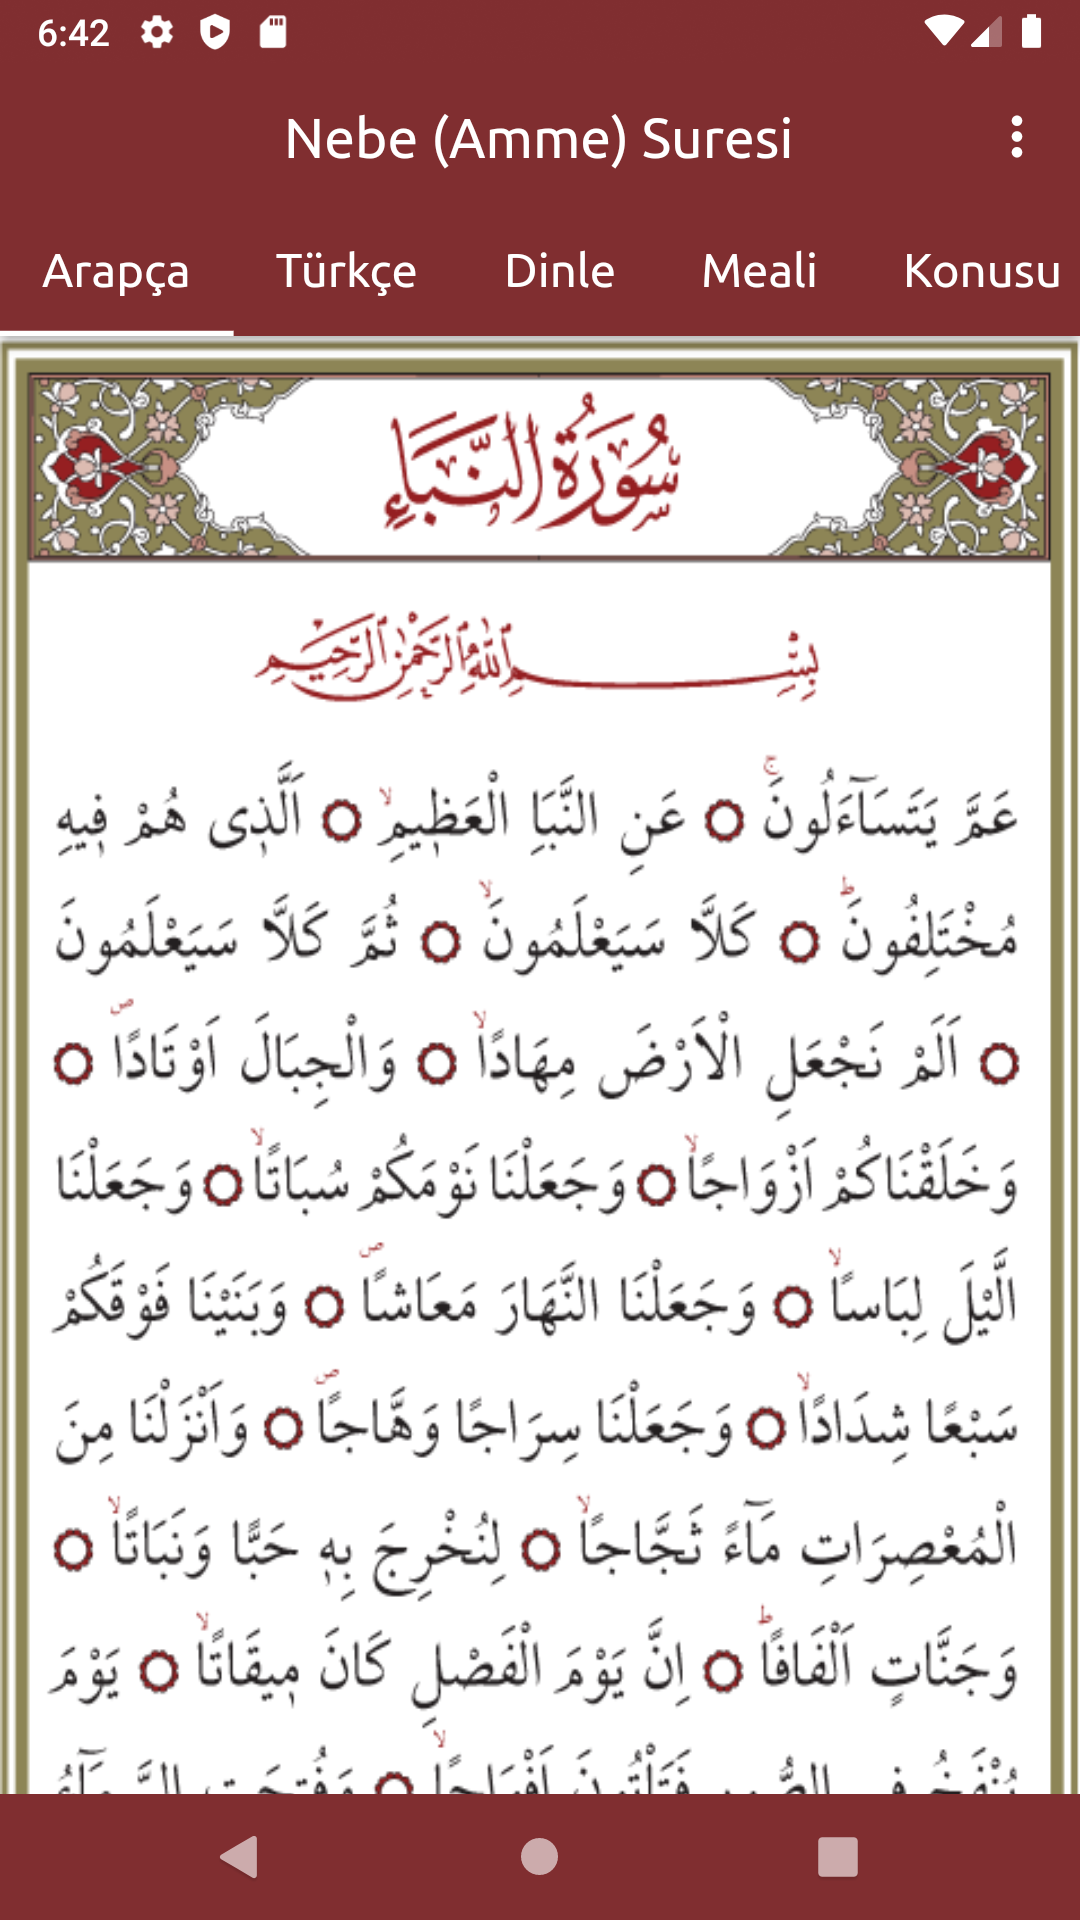 6:42
Nebe (Amme) Suresi
Arapça Türkçe Dinle Meali Konusu
سُورَةُ النَّبَأِ
بِسْمِ اللّٰهِ الرَّحْمٰنِ الرَّحِيمِ
عَمَّ يَتَسَآءَلُونَۚ ۝ عَنِ النَّبَاِ الْعَظٖيمِۙ ۝ اَلَّذٖى هُمْ فٖيهِ
مُخْتَلِفُونَؕ ۝ كَلَّا سَيَعْلَمُونَۙ ۝ ثُمَّ كَلَّا سَيَعْلَمُونَ
۝ اَلَمْ نَجْعَلِ الْاَرْضَ مِهَادًاۙ ۝ وَالْجِبَالَ اَوْتَادًاۖ ۝
وَخَلَقْنَاكُمْ اَزْوَاجًاۙ ۝ وَجَعَلْنَا نَوْمَكُمْ سُبَاتًاۙ ۝ وَجَعَلْنَا
الَّيْلَ لِبَاسًاۙ ۝ وَجَعَلْنَا النَّهَارَ مَعَاشًاۖ ۝ وَبَنَيْنَا فَوْقَكُمْ
سَبْعًا شِدَادًاۙ ۝ وَجَعَلْنَا سِرَاجًا وَهَّاجًاۖ ۝ وَاَنْزَلْنَا مِنَ
الْمُعْصِرَاتِ مَآءً ثَجَّاجًاۙ ۝ لِنُخْرِجَ بِهٖ حَبًّا وَنَبَاتًاۙ ۝
وَجَنَّاتٍ اَلْفَافًاؕ ۝ اِنَّ يَوْمَ الْفَصْلِ كَانَ مٖيقَاتًاۙ ۝ يَوْمَ